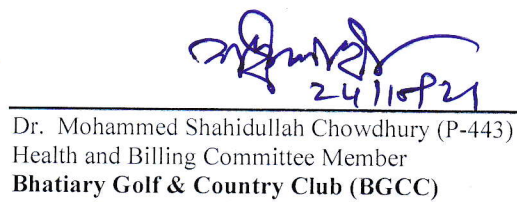 24/10/21
Dr. Mohammed Shahidullah Chowdhury (P-443)
Health and Billing Committee Member
Bhatiary Golf & Country Club (BGCC)